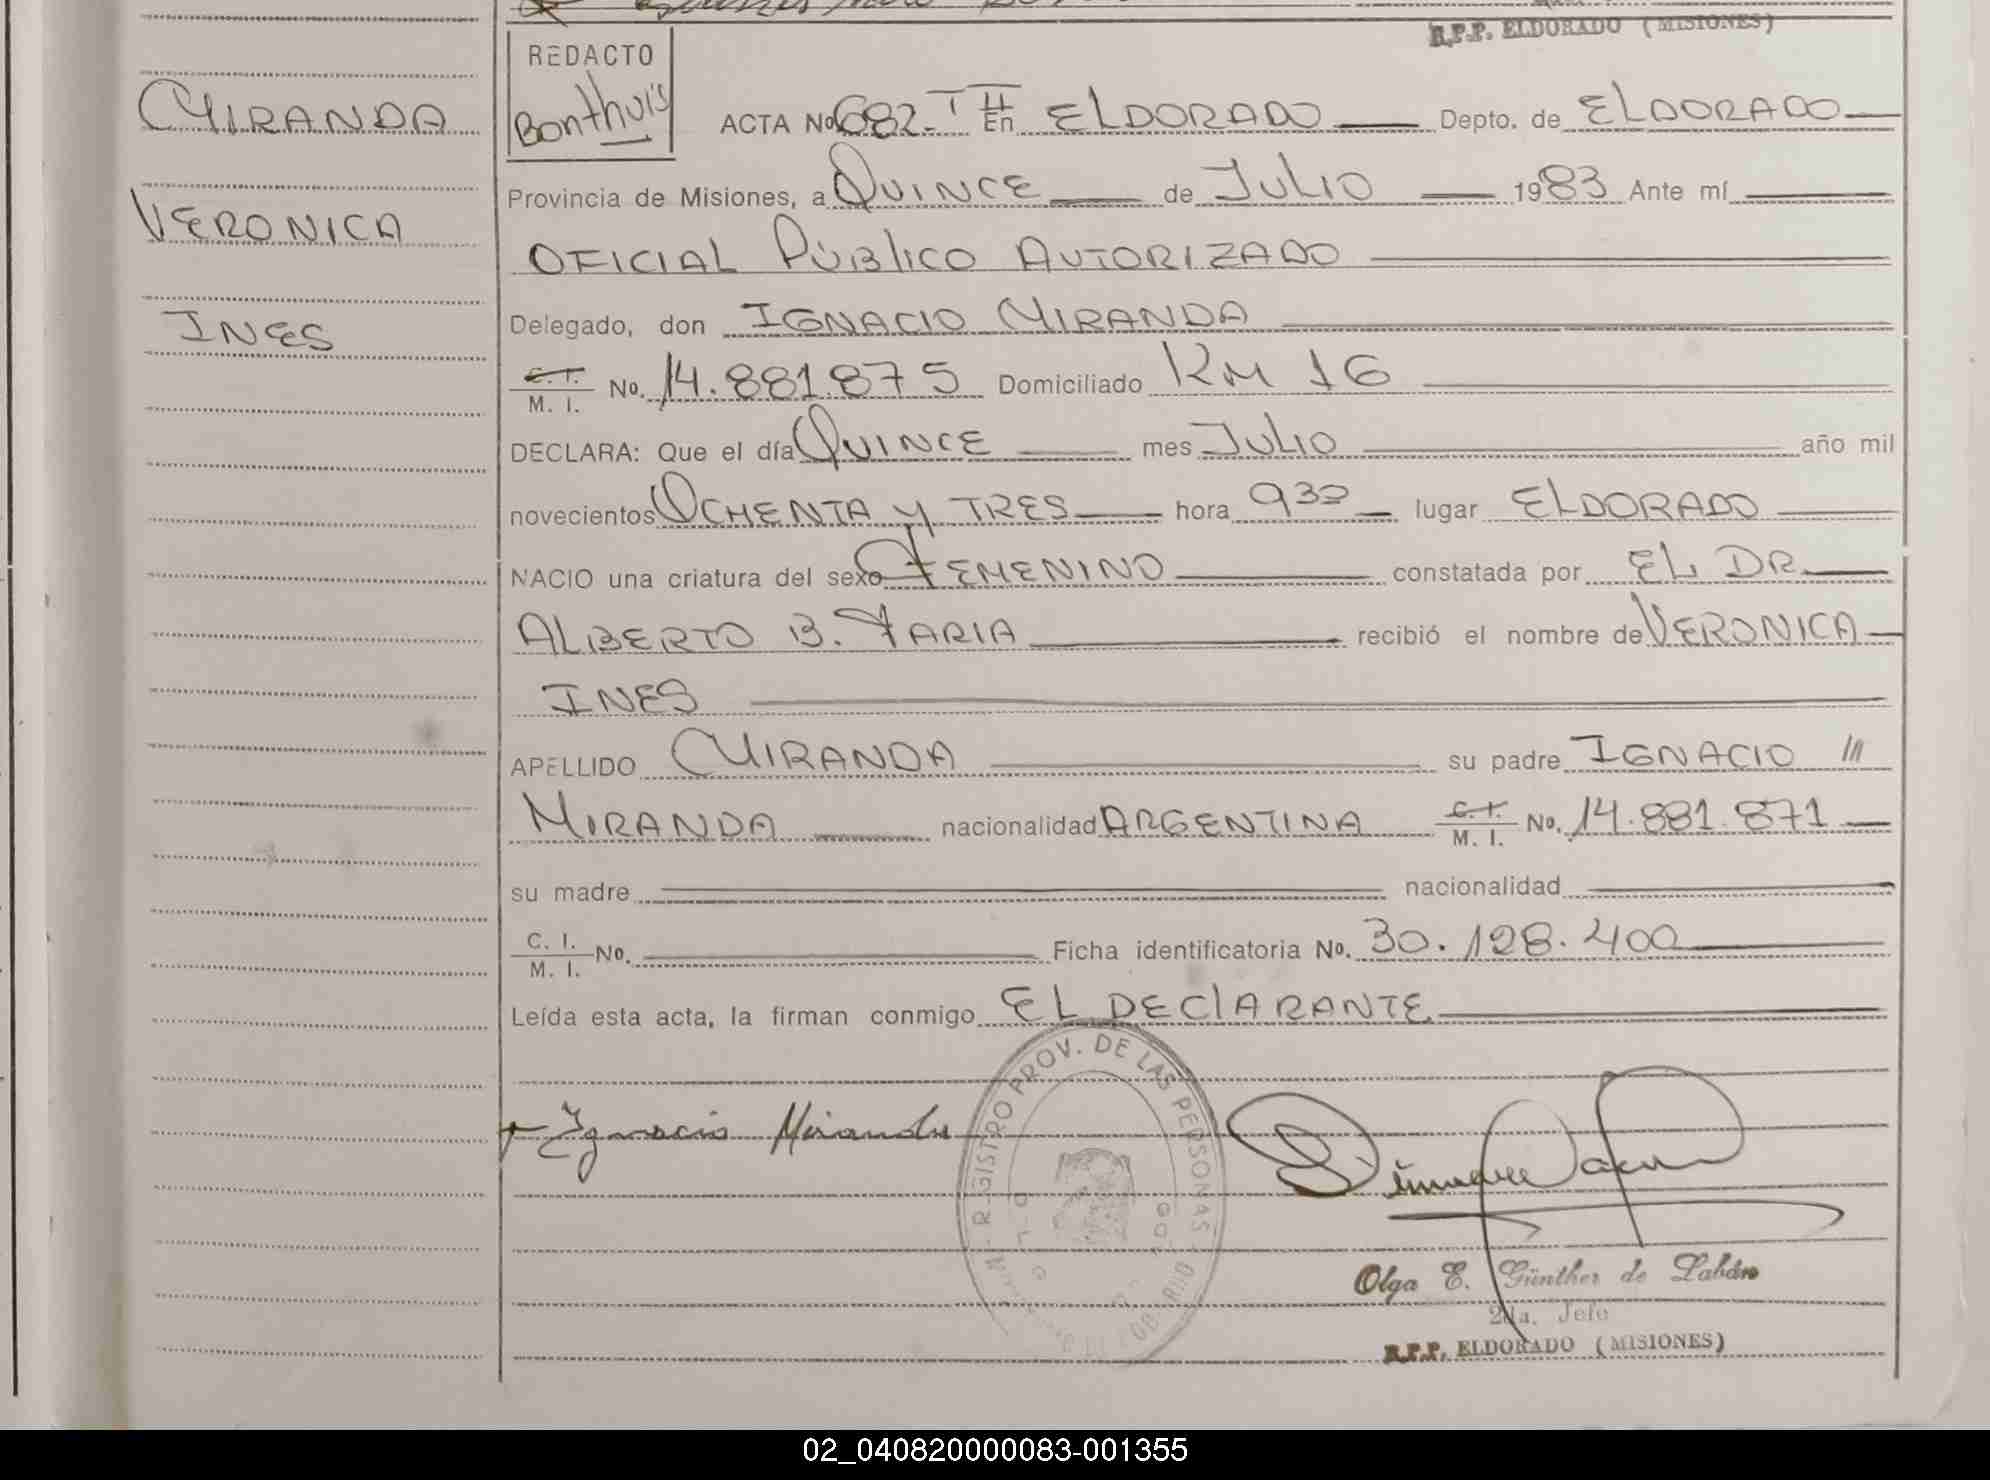 R.P.P. ELDORADO (MISIONES)
REDACTO
Bonthuis
MIRANDA
VERONICA
INES
ACTA No. 682-T II En ELDORADO Depto. de ELDORADO
Provincia de Misiones, a QUINCE de JULIO 1983 Ante mí
OFICIAL PÚBLICO AUTORIZADO
Delegado, don IGNACIO MIRANDA
C. I. M. I. No. 14.881.875 Domiciliado KM 16
DECLARA: Que el día QUINCE mes JULIO año mil
novecientos OCHENTA Y TRES hora 9 30 lugar ELDORADO
NACIO una criatura del sexo FEMENINO constatada por EL DR
ALBERTO B. FARIA recibió el nombre de VERONICA
INES
APELLIDO MIRANDA su padre IGNACIO
MIRANDA nacionalidad ARGENTINA C. I. M. I. No. 14.881.871
su madre nacionalidad
C. I. M. I. No. Ficha identificatoria No. 30.128.400
Leída esta acta, la firman conmigo EL DECLARANTE
REGISTRO PROV. DE LAS PERSONAS
Ignacio Miranda
Olga E. Günther de
2da. Jefe
R.P.P. ELDORADO (MISIONES)
02_040820000083-001355